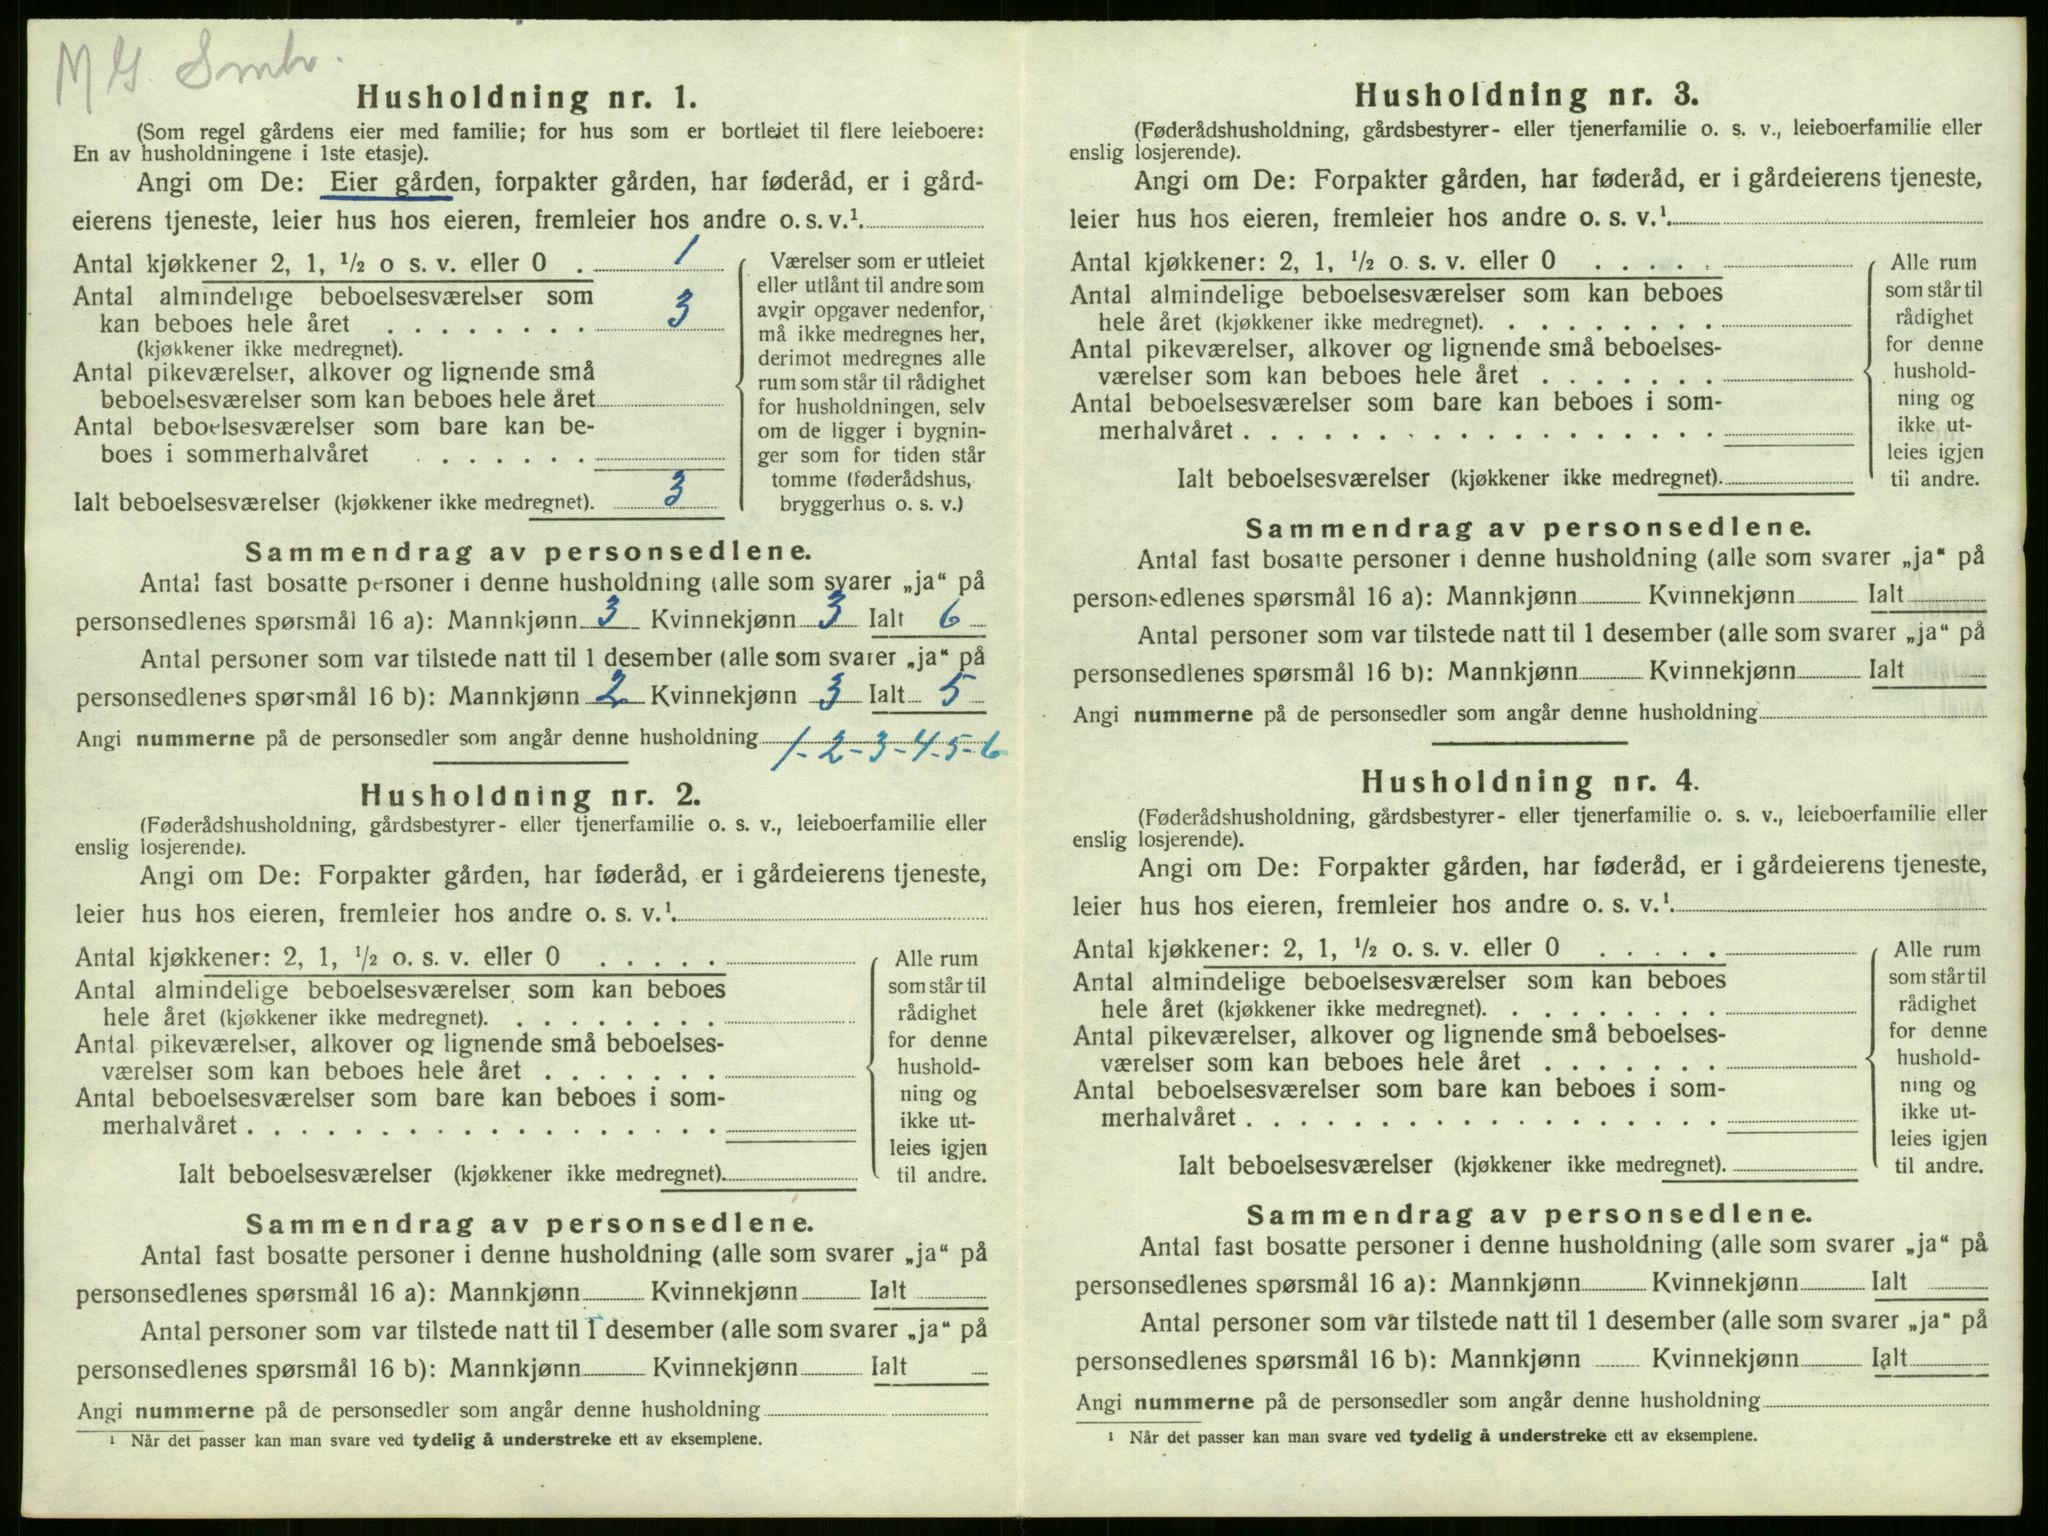 M G. Smbr.
Husholdning nr. 1.
(Som regel gårdens eier med familie; for hus som er bortleiet til flere leieboere:
En av husholdningene i 1ste etasje).
Angi om De: Eier gården, forpakter gården, har føderåd, er i gård-
eierens tjeneste, leier hus hos eieren, fremleier hos andre o. s. v.¹
Antal kjøkkener 2, 1, ½ o s. v. eller 0 . 1
Antal almindelige beboelsesværelser som
kan beboes hele året . . . . . . . . 3
(kjøkkener ikke medregnet).
Antal pikeværelser, alkover og lignende små
beboelsesværelser som kan beboes hele året
Antal beboelsesværelser som bare kan be-
boes i sommerhalvåret . . . . . .
Ialt beboelsesværelser (kjøkkener ikke medregnet). 3
Værelser som er utleiet
eller utlånt til andre som
avgir opgaver nedenfor,
må ikke medregnes her,
derimot medregnes alle
rum som står til rådighet
for husholdningen, selv
om de ligger i bygnin-
ger som for tiden står
tomme (føderådshus,
bryggerhus o. s. v.)
Sammendrag av personsedlene.
Antal fast bosatte personer i denne husholdning (alle som svarer „ja“ på
personsedlenes spørsmål 16 a): Mannkjønn 3 Kvinnekjønn 3 Ialt 6
Antal personer som var tilstede natt til 1 desember (alle som svarer „ja“ på
personsedlenes spørsmål 16 b): Mannkjønn 2 Kvinnekjønn 3 Ialt 5
Angi nummerne på de personsedler som angår denne husholdning 1-2-3-4-5-6
Husholdning nr. 2.
(Føderådshusholdning, gårdsbestyrer- eller tjenerfamilie o. s. v., leieboerfamilie eller
enslig losjerende).
Angi om De: Forpakter gården, har føderåd, er i gårdeierens tjeneste,
leier hus hos eieren, fremleier hos andre o. s. v.¹
Antal kjøkkener: 2, 1, ½ o. s. v. eller 0 . . . . .
Antal almindelige beboelsesværelser som kan beboes
hele året (kjøkkener ikke medregnet). . . . . . . . .
Antal pikeværelser, alkover og lignende små beboelses-
værelser som kan beboes hele året . . . . . . .
Antal beboelsesværelser som bare kan beboes i som-
merhalvåret . . . . . . . . . . . . . . . . . .
Ialt beboelsesværelser (kjøkkener ikke medregnet).
Alle rum
som står til
rådighet
for denne
hushold-
ning og
ikke ut-
leies igjen
til andre.
Sammendrag av personsedlene.
Antal fast bosatte personer i denne husholdning (alle som svarer „ja“ på
personsedlenes spørsmål 16 a): Mannkjønn Kvinnekjønn Ialt
Antal personer som var tilstede natt til 1 desember (alle som svarer „ja“ på
personsedlenes spørsmål 16 b): Mannkjønn Kvinnekjønn Ialt
Angi nummerne på de personsedler som angår denne husholdning
¹ Når det passer kan man svare ved tydelig å understreke ett av eksemplene.
Husholdning nr. 3.
(Føderådshusholdning, gårdsbestyrer- eller tjenerfamilie o. s. v., leieboerfamilie eller
enslig losjerende).
Angi om De: Forpakter gården, har føderåd, er i gårdeierens tjeneste,
leier hus hos eieren, fremleier hos andre o. s. v.¹
Antal kjøkkener: 2, 1, ½ o. s. v. eller 0 . . . . .
Antal almindelige beboelsesværelser som kan beboes
hele året (kjøkkener ikke medregnet). . . . . . . . .
Antal pikeværelser, alkover og lignende små beboelses-
værelser som kan beboes hele året . . . . . . .
Antal beboelsesværelser som bare kan beboes i som-
merhalvåret . . . . . . . . . . . . . . . . . .
Ialt beboelsesværelser (kjøkkener ikke medregnet).
Alle rum
som står til
rådighet
for denne
hushold-
ning og
ikke ut-
leies igjen
til andre.
Sammendrag av personsedlene.
Antal fast bosatte personer i denne husholdning (alle som svarer „ja“ på
personsedlenes spørsmål 16 a): Mannkjønn Kvinnekjønn Ialt
Antal personer som var tilstede natt til 1 desember (alle som svarer „ja“ på
personsedlenes spørsmål 16 b): Mannkjønn Kvinnekjønn Ialt
Angi nummerne på de personsedler som angår denne husholdning
Husholdning nr. 4.
(Føderådshusholdning, gårdsbestyrer- eller tjenerfamilie o. s. v., leieboerfamilie eller
enslig losjerende).
Angi om De: Forpakter gården, har føderåd, er i gårdeierens tjeneste,
leier hus hos eieren, fremleier hos andre o. s. v.¹
Antal kjøkkener: 2, 1, ½ o. s. v. eller 0 . . . . .
Antal almindelige beboelsesværelser som kan beboes
hele året (kjøkkener ikke medregnet). . . . . . . . .
Antal pikeværelser, alkover og lignende små beboelses-
værelser som kan beboes hele året . . . . . . .
Antal beboelsesværelser som bare kan beboes i som-
merhalvåret . . . . . . . . . . . . . . . . . .
Ialt beboelsesværelser (kjøkkener ikke medregnet).
Alle rum
som står til
rådighet
for denne
hushold-
ning og
ikke ut-
leies igjen
til andre.
Sammendrag av personsedlene.
Antal fast bosatte personer i denne husholdning (alle som svarer „ja“ på
personsedlenes spørsmål 16 a): Mannkjønn Kvinnekjønn Ialt
Antal personer som var tilstede natt til 1 desember (alle som svarer „ja“ på
personsedlenes spørsmål 16 b): Mannkjønn Kvinnekjønn Ialt
Angi nummerne på de personsedler som angår denne husholdning
¹ Når det passer kan man svare ved tydelig å understreke ett av eksemplene.